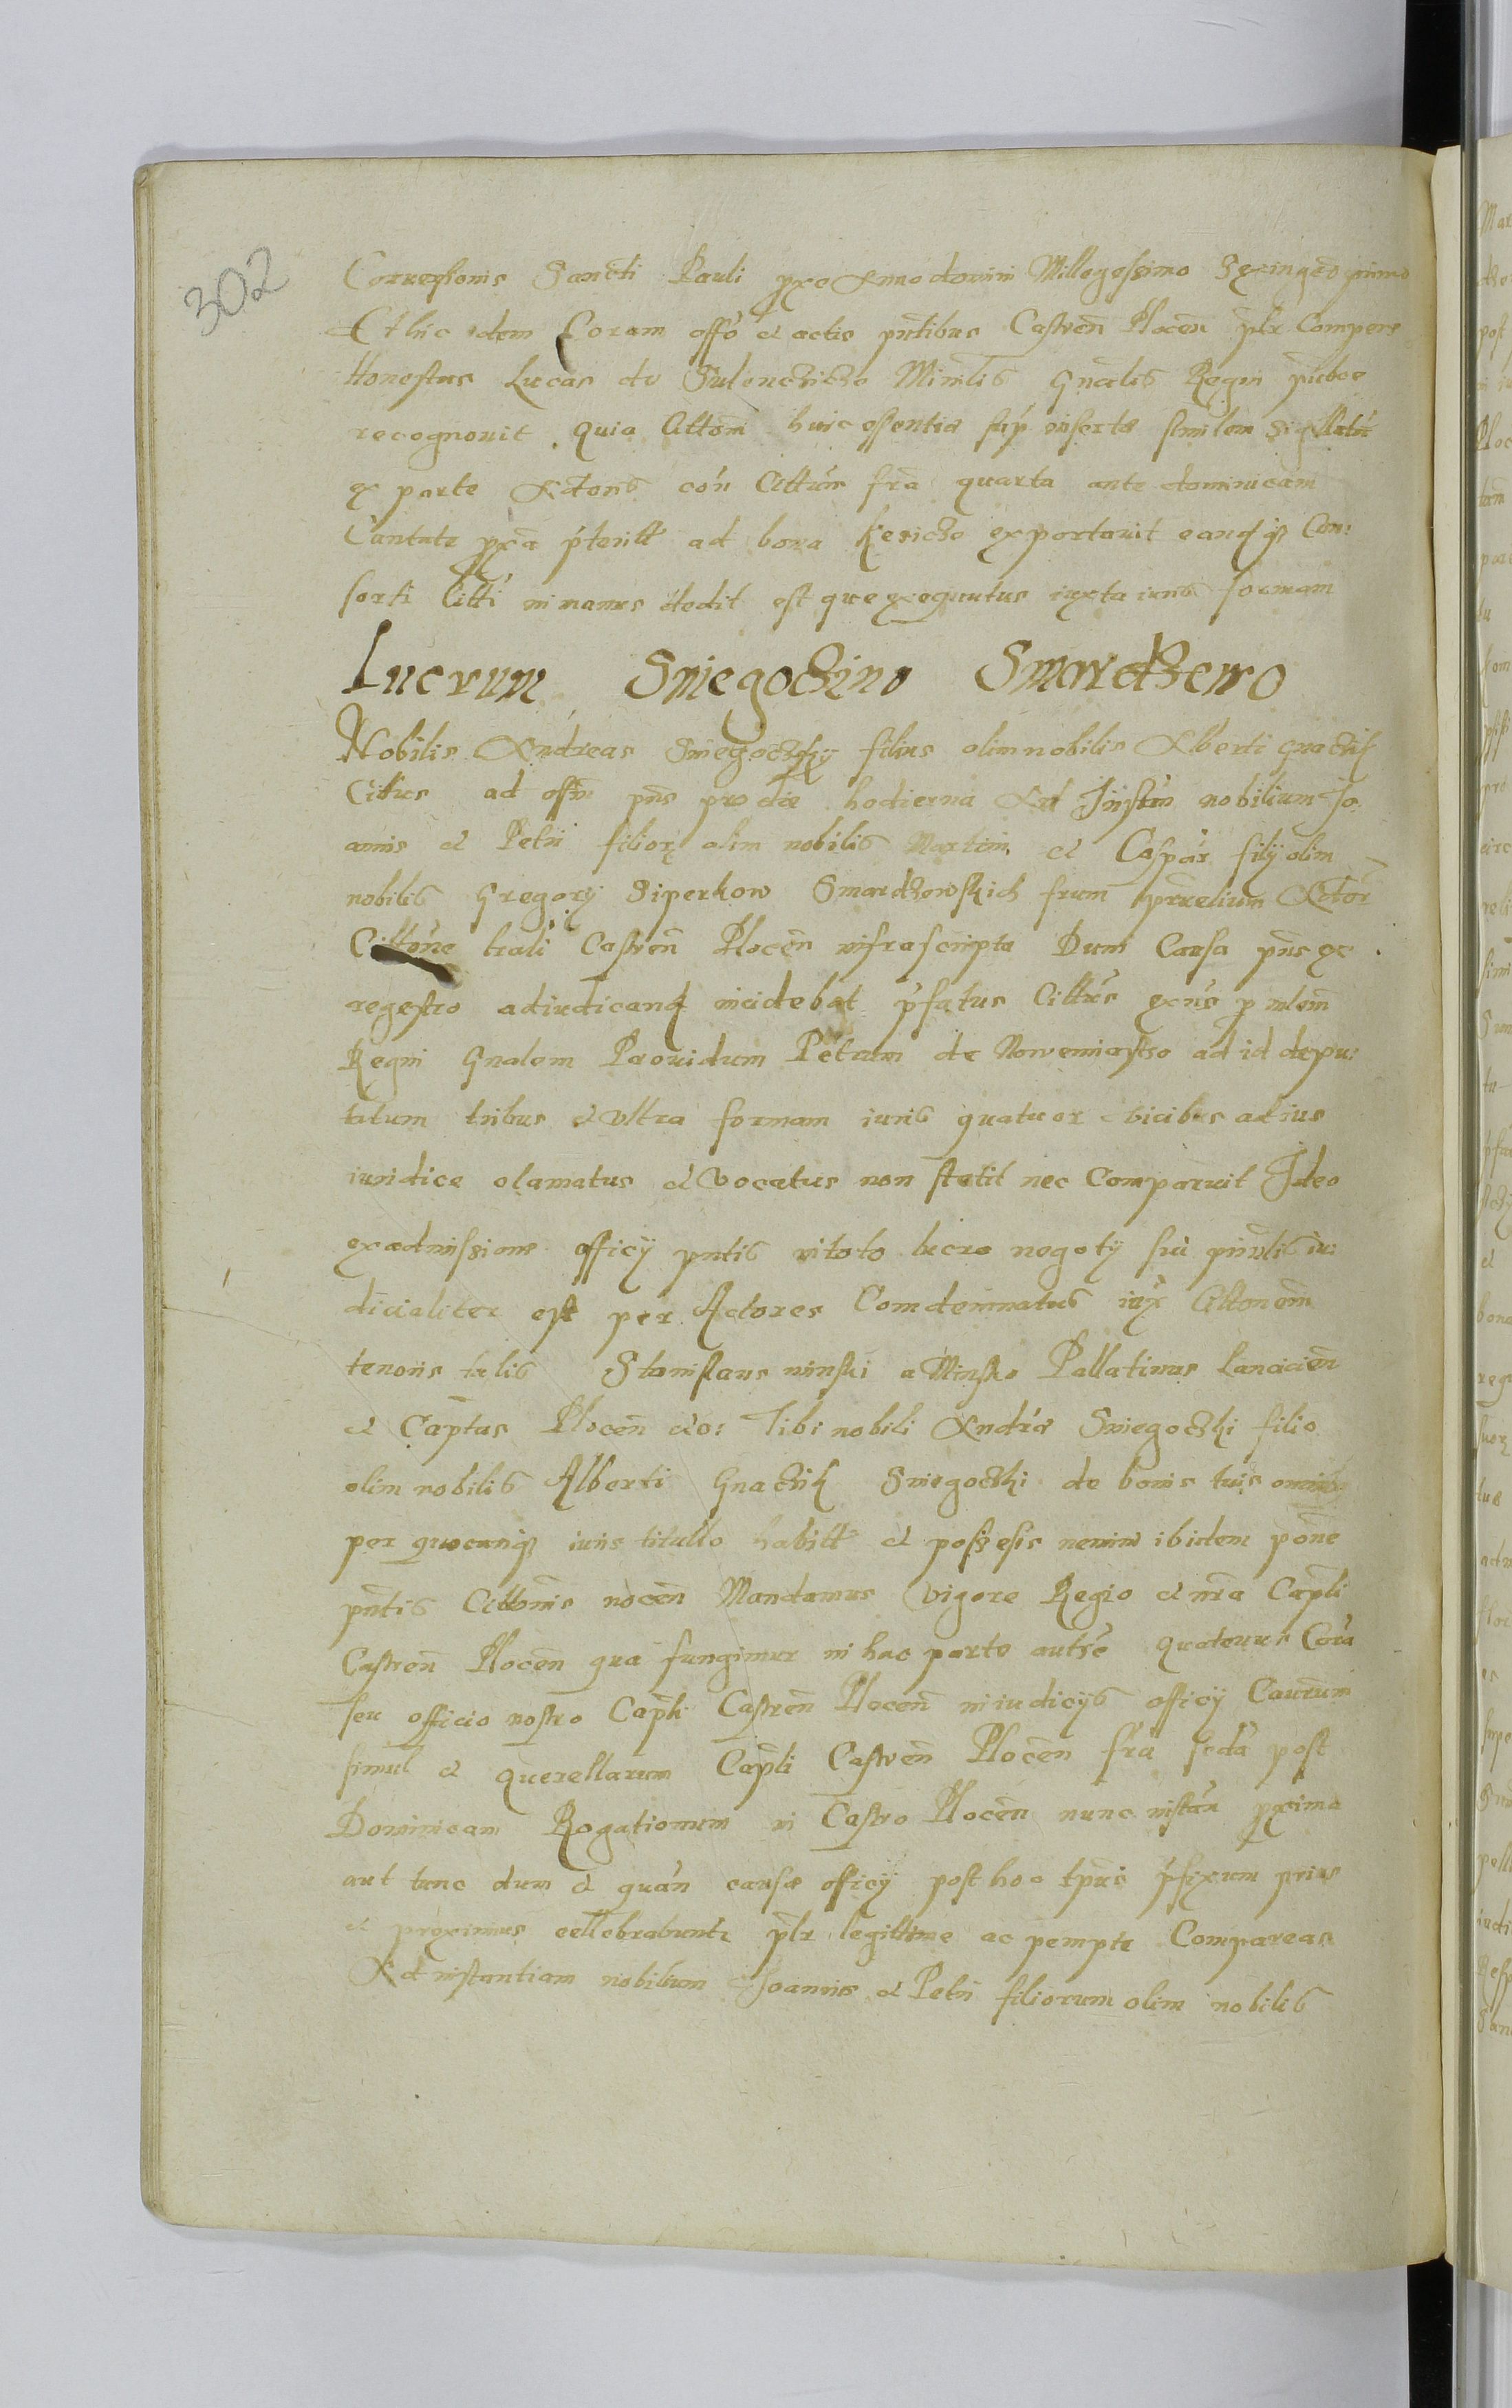 302
Conversionis Sancti Pauli pxe Anno domini Millegessimo Sexingeo primo
Et hic idem Coram offo et actis pntibus Castren Plocen plr Compere
Honestus Lucas de Sulenczicze Minlis Gnalis Regni publce
recognouit quia Citton huic essentia sup inserta similem Sigillatu
ex parte Actoris con Cittum fra quarta ante dominicam
Cantate pxa pterilt ad bona exportauit eandq Con:
sorti Citti in manus dedit est que exequutus iuxta iuris formam
Lucrum Sniegoczino Smardzewo
Nobilis Andreas Sniegoczky filius olim nobilis Alberti Gnaczik
Citus ad offm pns pro die hodierna Ad Instan nobilium Jo
annis et Petri filior olim nobilis Martini et Caspar filij olim
nobilis Gregorij Siperkow Smardzewskich frum prruelium Actor
Cittone trali Castren Plocen infrascripta Dum Causa pns ex
regestro adiudicand incidebat pfatus Cittus exns p mlem
Regni Gnalem Prouidum Petrum de Nowemiastho ad id depu:
tatum tribus et vltra formam iuris quatuor vicibus ad ius
iuridice clamatus et vocatus non stetit nec Comparuit Ideo
ex admissione officij pntis in toto lucro negotij sui pinvlis iu:
dicialiter est per Actores Comdemnatus iux Cittonem
tenoris talis Stanislaus minski a Minsko Pallatinus Lancicien
et Captus Plocen etc: Tibi nobili Andrea Sniegoczki filio
olim nobilis Alberti Gnaczik Sniegoczki de bonis tuis omnib
per quocunq iuris titullo habitt et possesis nemin ibidem pone
pntis Cittonis nocen Mandamus vigore Regio et nra Capli
Castren Plocen qua fungimur in hac parte autte quatenus Cora
seu officio nostro Capli Castren Plocen in iudicijs officij Caurum
simul et querellarum Capli Castren Plocen fra scda post
Dominicam Rogationum in Castro Plocen nunc instan pxima
aut tunc dum et quan causae officij post hoc tpus pfixum prius
et proximus cellebrabuntr plr legittime ac pempte Compareas
Ad instantiam nobilium Joannis et Petri filiorum olim nobilis